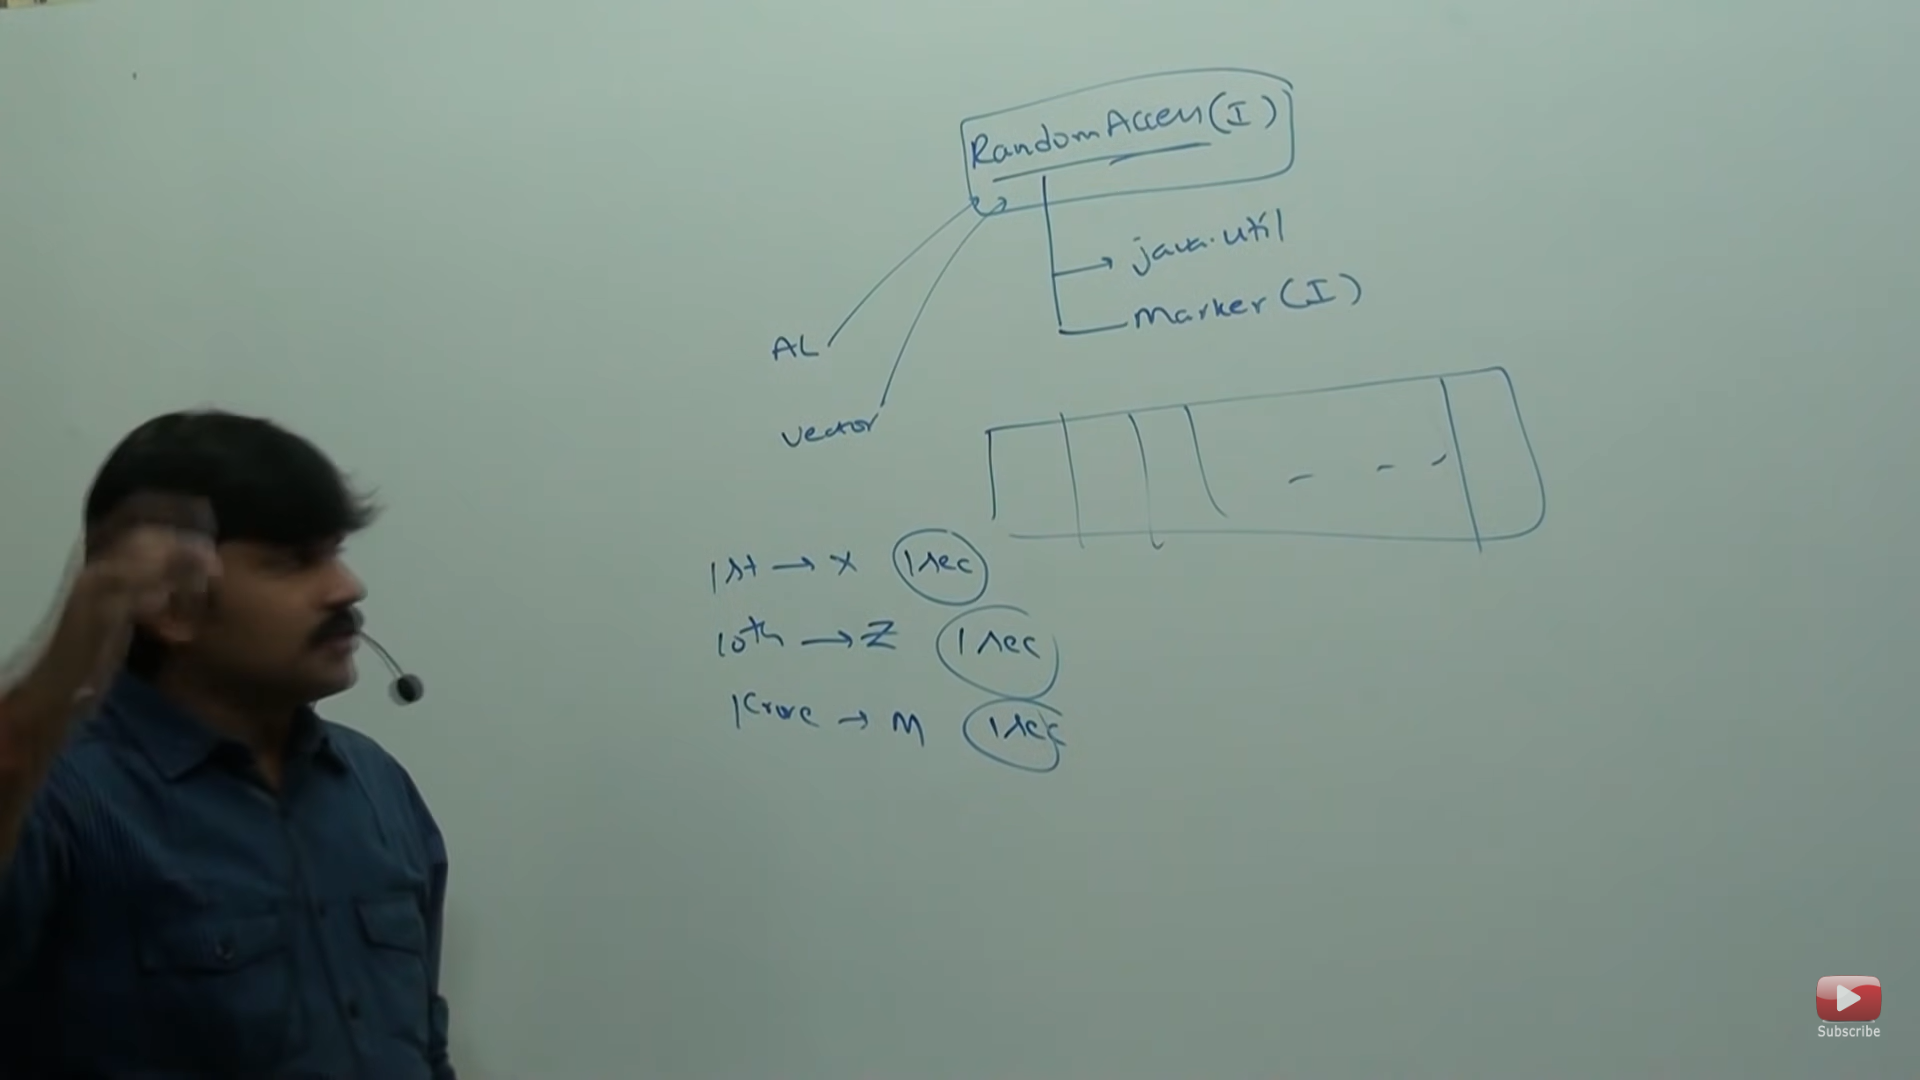 RandomAccess(I)
→ java.util
Marker (I)
AL
Vector
1st → X 1 sec
10th → Z 1 sec
1 Crore → M 1 sec
Subscribe